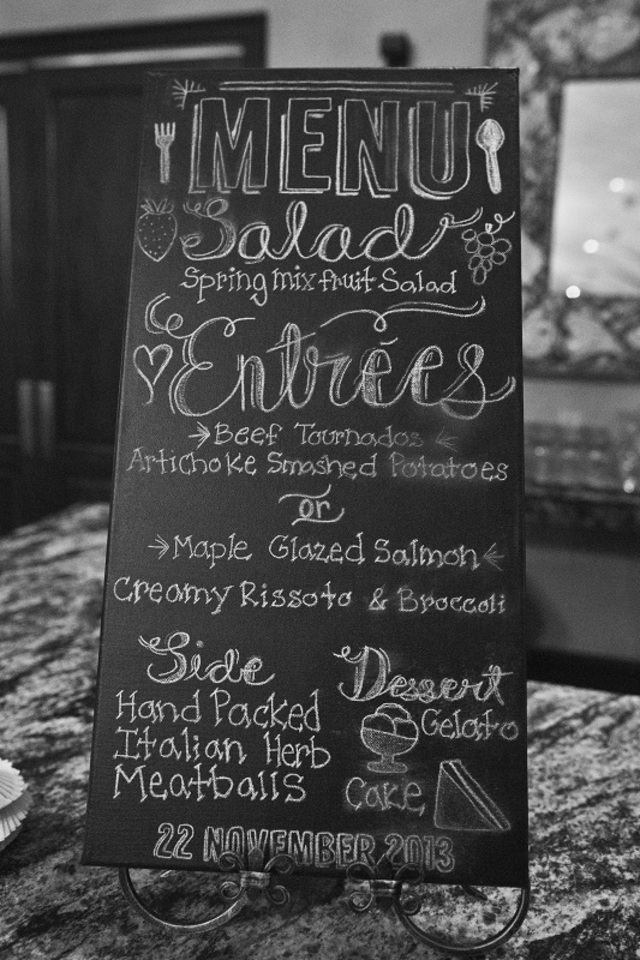 MENU
Salad
Spring mix fruit Salad
Entrées
Beef Tournados
Artichoke Smashed Potatoes
or
Maple Glazed Salmon
Creamy Rissoto & Broccoli
Side
Hand Packed
Italian Herb
Meatballs
Dessert
Gelato
Cake
22 NOVEMBER 2013